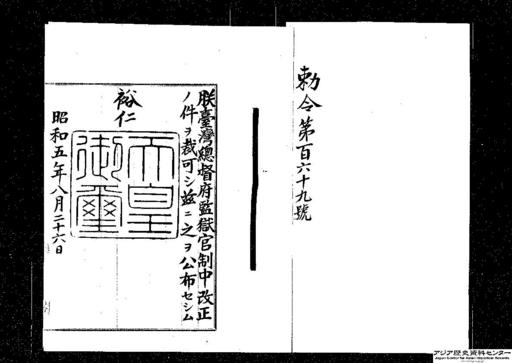 勅令第百六十九號
朕臺灣總督府監獄官制中改正
ノ件ヲ裁可シ茲ニ之ヲ公布セシム
裕仁
天皇
御璽
昭和五年八月二十六日
アジア歴史資料センター
Japan Center for Asian Historical Records